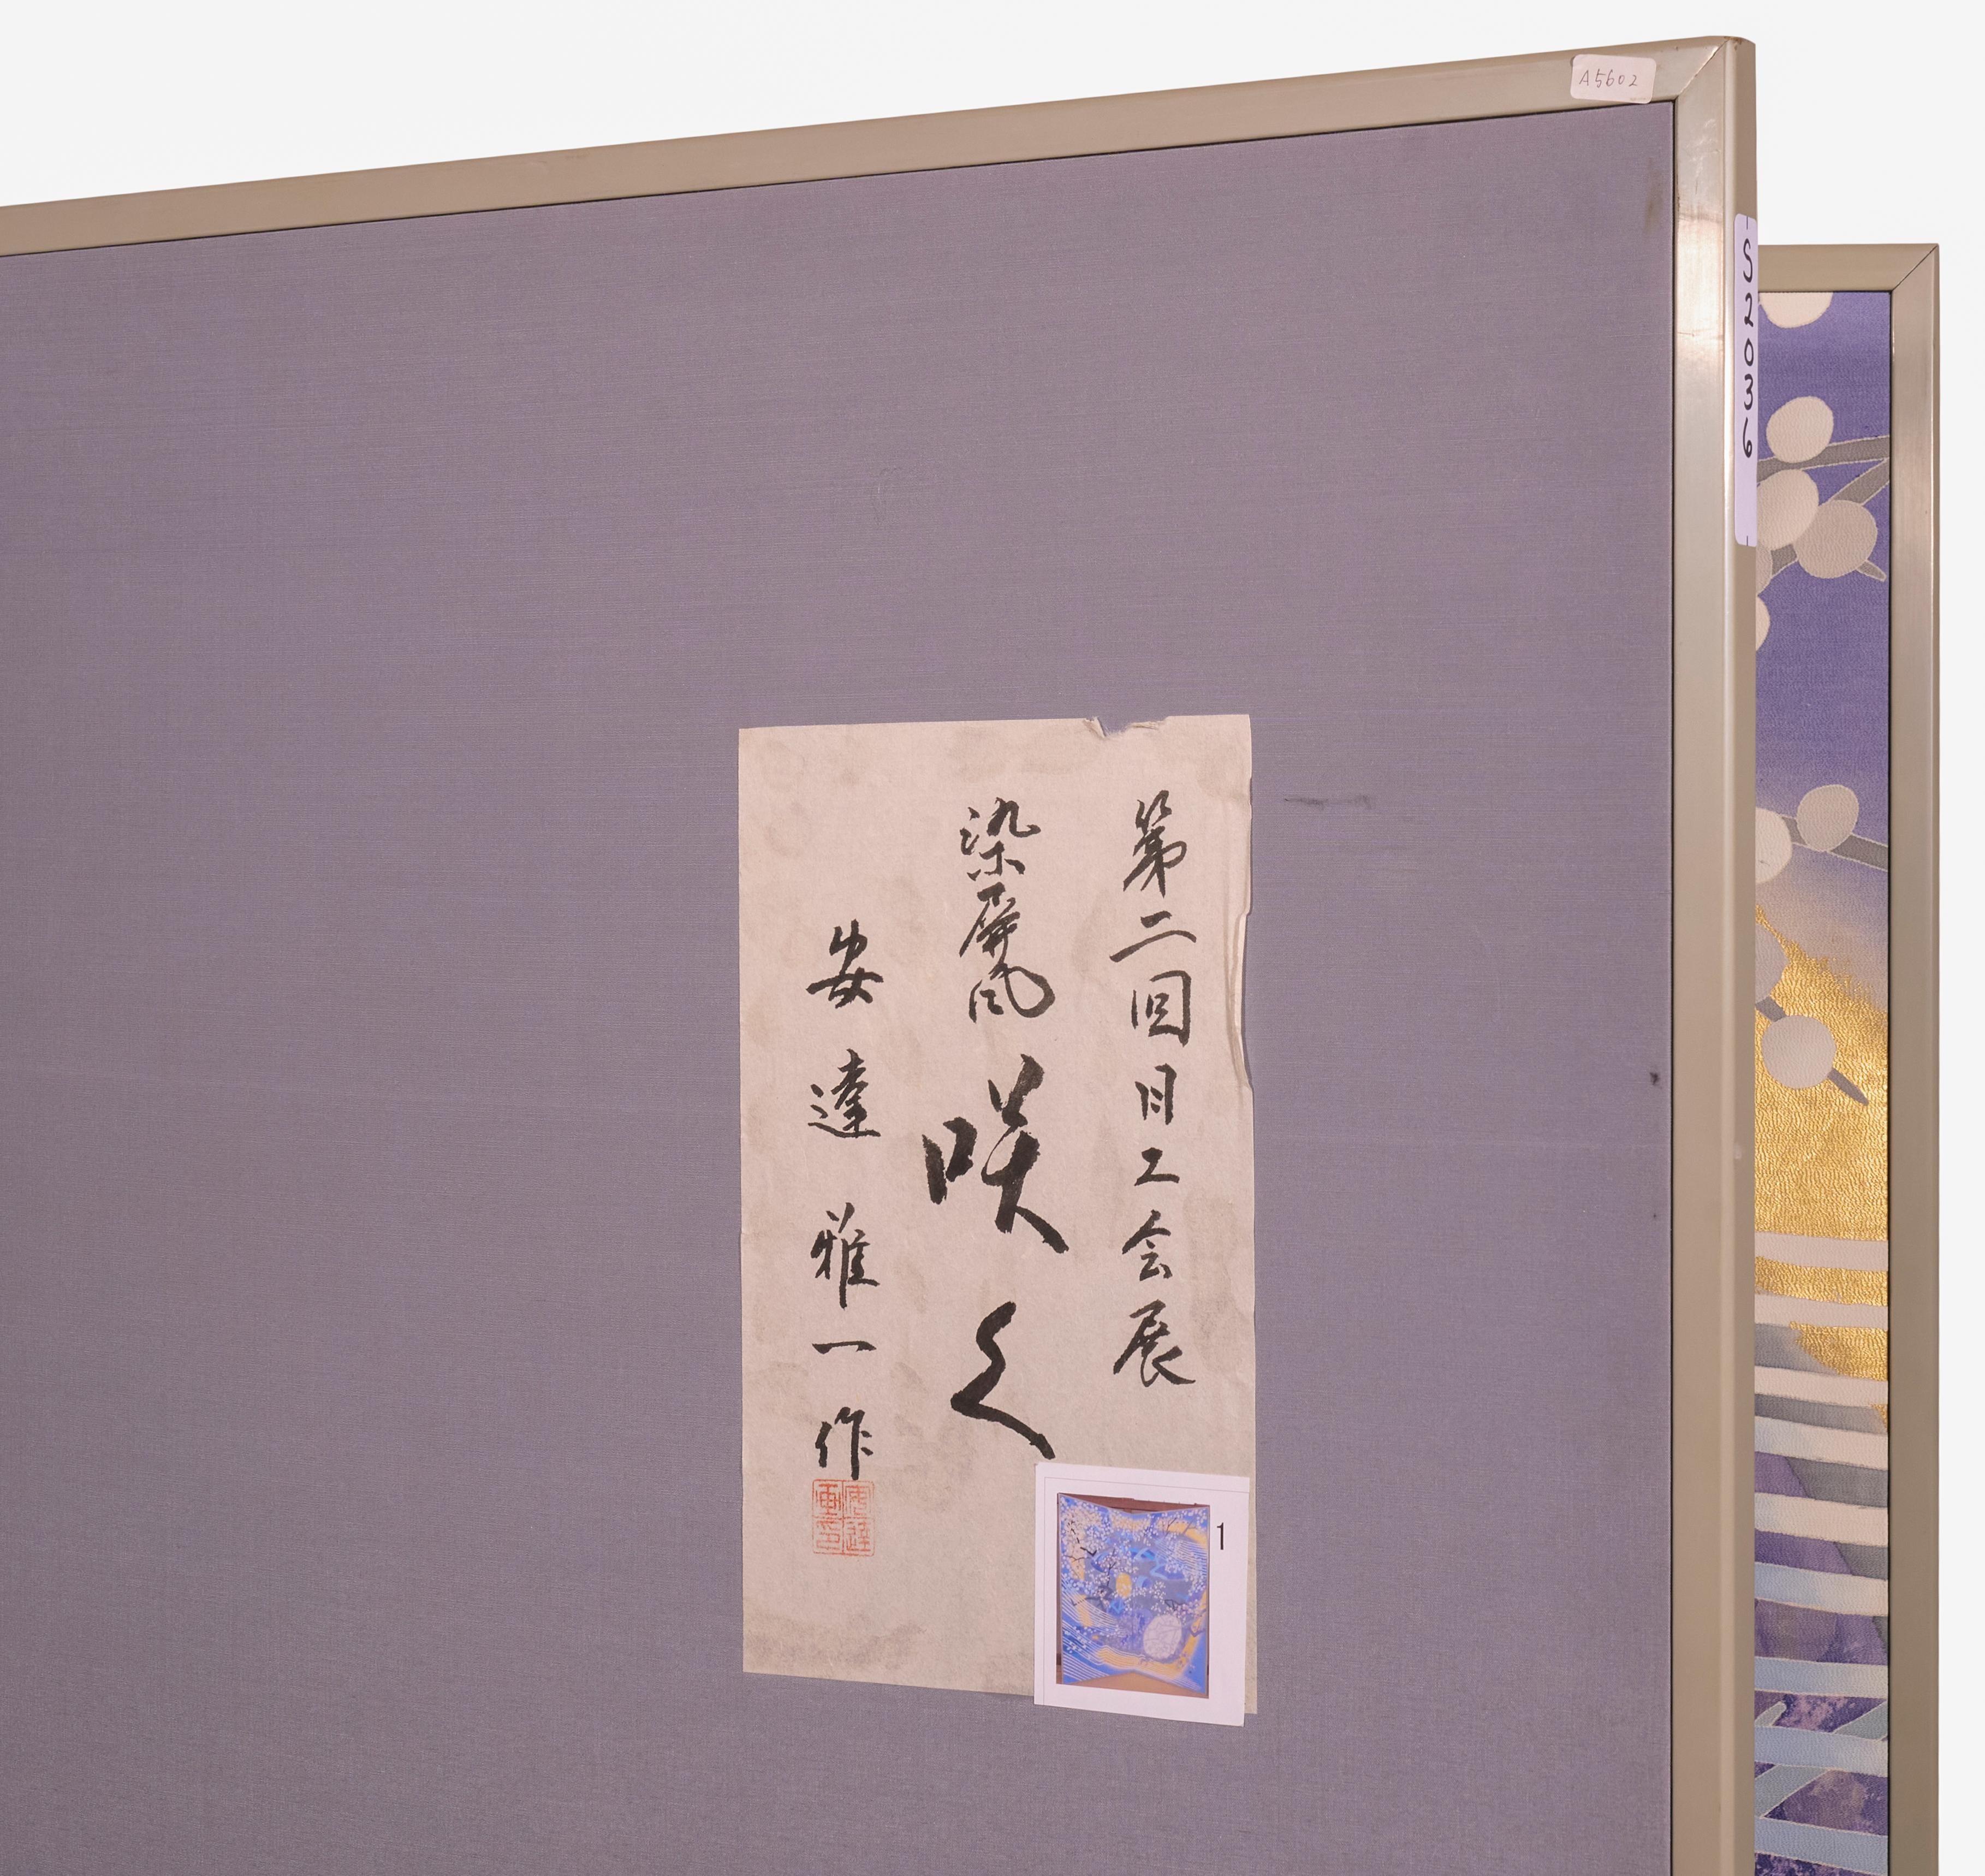 A5602
S2036
第二回日工会展
染屏風 咲く
安達雅一作
安達
画印
1